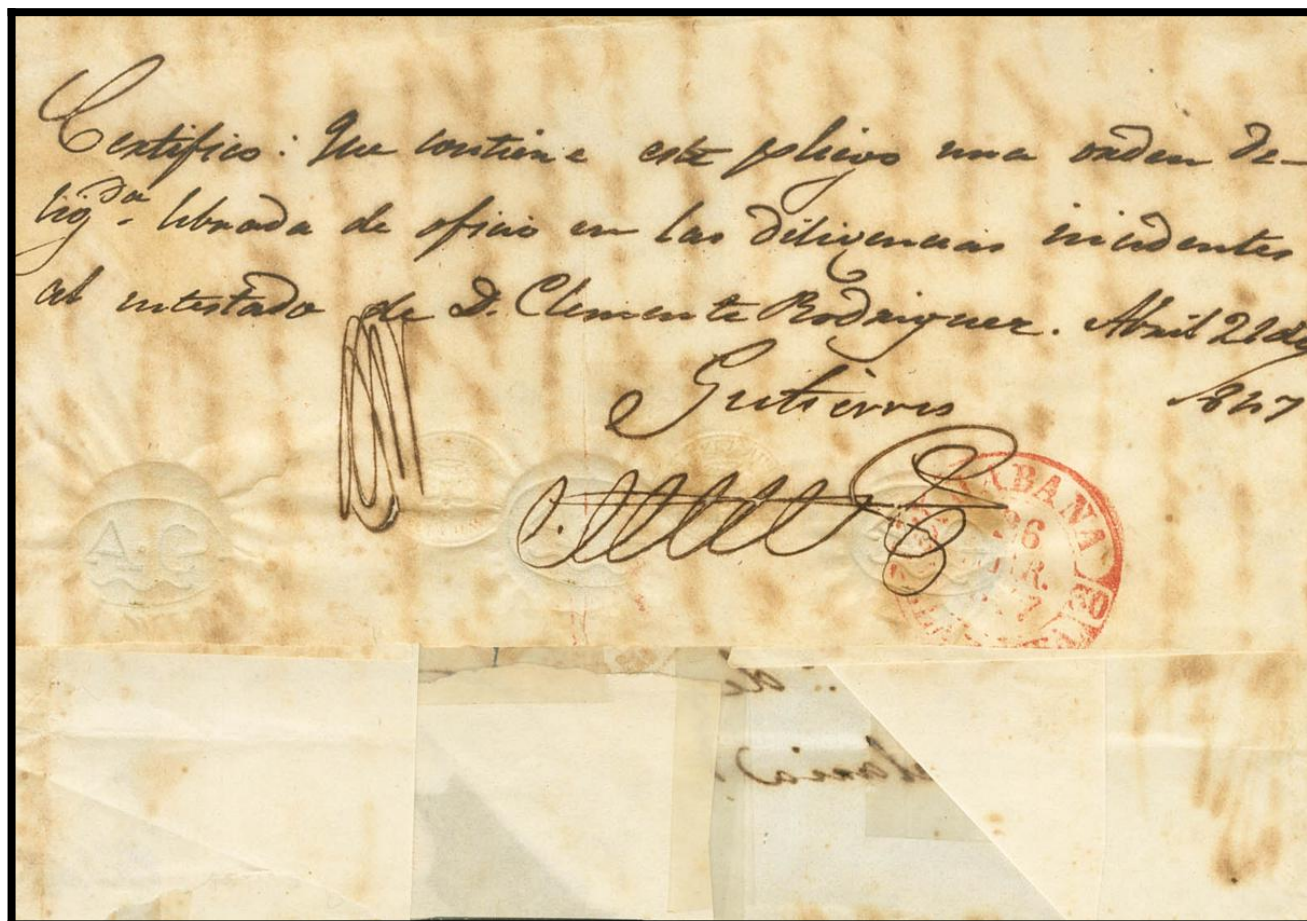 Certifico: Que contiene este pliego una orden de-
lig.da librada de oficio en las diligencias incidentes
al intestado de D. Clemente Rodriguez. Abril 21 de
Gutierres 1847
A.G
HABANA
26
7